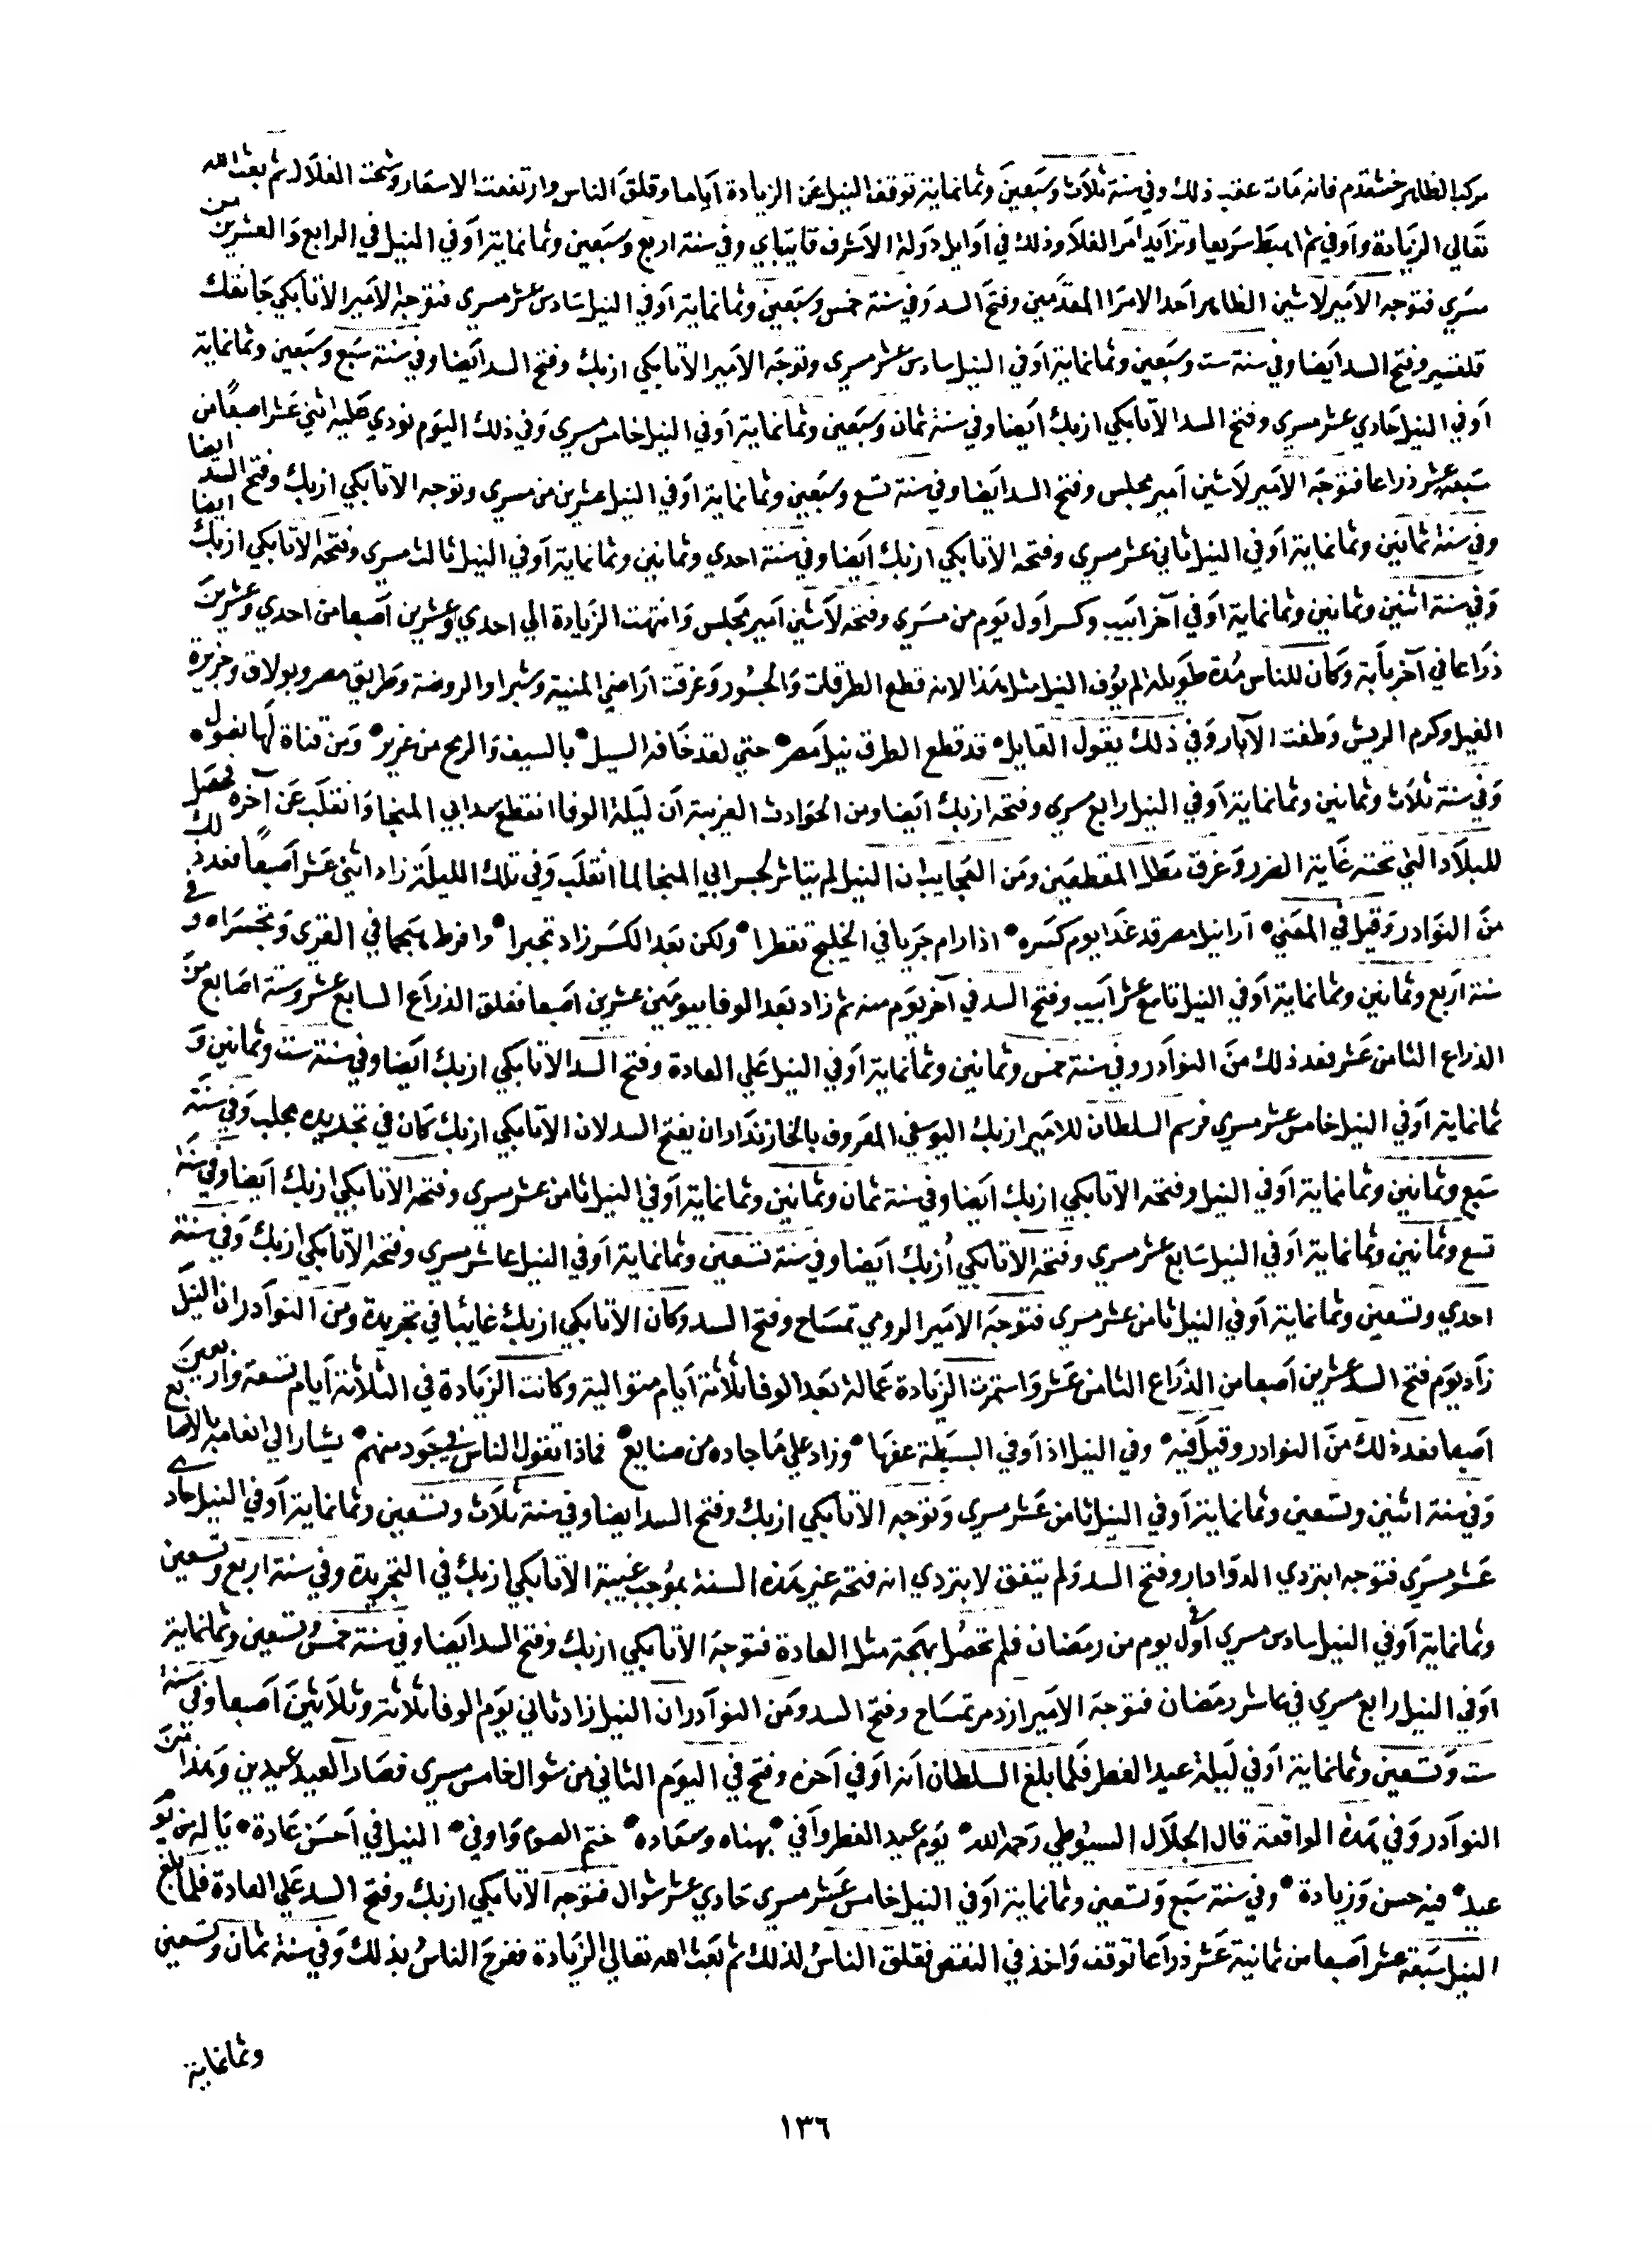 مركب الظاهر خشقدم فانه مات عقب ذلك وفي سنة ثلاث وسبعين وثمانماية توقف النيل عن الزيادة اياما وقلق الناس وارتفعت الاسعار وشحت الغلال ثم بعث الله
تعالي الزيادة واوفي ثم اهبط سريعا وتزايد امر الغلا وذلك في اوايل دولة الاشرف قايتباي وفي سنة اربع وسبعين وثمانماية اوفي النيل في الرابع والعشرين من
مسري فتوجه الامير لاشين الظاهر احد الامرا المقدمين وفتح السد وفي سنة خمس وسبعين وثمانماية اوفي النيل سادس عشر مسري فتوجه الامير الاتابكي جانقك
قلقسير وفتح السد ايضا وفي سنة ست وسبعين وثمانماية اوفي النيل سادس عشر مسري وتوجه الامير الاتابكي ازبك وفتح السد ايضا وفي سنة سبع وسبعين وثمانماية
اوفي النيل حادي عشر مسري وفتح السد الاتابكي ازبك ايضا وفي سنة ثمان وسبعين وثمانماية اوفي النيل خامس مسري وفي ذلك اليوم نودي عليه اثني عشر اصبعا من
سبعة عشر ذراعا فتوجه الامير لاشين امير مجلس وفتح السد ايضا وفي سنة تسع وسبعين وثمانماية اوفي النيل عشرين من مسري وتوجه الاتابكي ازبك وفتح السد ايضا
وفي سنة ثمانين وثمانماية اوفي النيل ثاني عشر مسري وفتحه الاتابكي ازبك ايضا وفي سنة احدي وثمانين وثمانماية اوفي النيل ثالث مسري وفتحه الاتابكي ازبك ايضا
وفي سنة اثنين وثمانين وثمانماية اوفي آخر ابيب وكسر اول يوم من مسري وفتحه لاشين امير مجلس وانتهت الزيادة الي احدي وعشرين اصبعا من احدي وعشرين
ذراعا في آخر بابة وكان للناس مدة طويلة لم يوف النيل مثل هذا لانه قطع الطرقات والجسور وغرقت اراضي المنية وشبرا والروضة وطريق مصر وبولاق وجزيرة
الفيل وكرم الريش وطفت الآبار وفي ذلك يقول القايل • قد قطع الطرق نيل مصر • حتي لقد خافه السيل • بالسيف والرمح من غزير • ومن قناة لها نصول •
وفي سنة ثلاث وثمانين وثمانماية اوفي النيل رابع مسري وفتحه ازبك ايضا ومن الحوادث الغريبة ان ليلة الوفا انقطع سد ابي المنجا وانقلب عن آخره فحصل
للبلاد التي تحته غاية الضرر وغرق مطل المقطعين ومن العجايب ان النيل لم يتاثر لجسر ابي المنجا لما انقلب وفي تلك الليلة زاد اثني عشر اصبعا فعد ذلك
من النوادر وقيل في المعني • ارا نيل مصر قد غدا يوم كسره • اذا رام جريا في الخليج تقطرا • ولكن بعد الكسر زاد تجبرا • وافرط هجما في القري وتجسرا • وفي
سنة اربع وثمانين وثمانماية اوفي النيل تاسع عشر ابيب وفتح السد في آخر يوم منه ثم زاد بعد الوفا بيومين عشرين اصبعا فغلق الذراع السابع عشر وستة اصابع من
الذراع الثامن عشر فعد ذلك من النوادر وفي سنة خمس وثمانين وثمانماية اوفي النيل علي العادة وفتح السد الاتابكي ازبك ايضا وفي سنة ست وثمانين و
ثمانماية اوفي النيل خامس عشر مسري فرسم السلطان للامير ازبك اليوسفي المعروف بالخازندار ان يفتح السد لان الاتابكي ازبك كان في تجريده بحلب وفي سنة
سبع وثمانين وثمانماية اوفي النيل وفتحه الاتابكي ازبك ايضا وفي سنة ثمان وثمانين وثمانماية اوفي النيل ثامن عشر مسري وفتحه الاتابكي ازبك ايضا وفي سنة
تسع وثمانين وثمانماية اوفي النيل سابع عشر مسري وفتحه الاتابكي أزبك ايضا وفي سنة تسعين وثمانماية اوفي النيل عاشر مسري وفتحه الاتابكي ازبك وفي سنة
احدي وتسعين وثمانماية اوفي النيل ثامن عشر مسري فتوجه الامير الرومي تمساح وفتح السد وكان الاتابكي ازبك غايبا في تجريدة ومن النوادر ان النيل
زاد يوم فتح السد عشرين اصبعا من الذراع الثامن عشر واستمرت الزيادة عمالة بعد الوفا ثلاثة ايام متوالية وكانت الزيادة في الثلاثة ايام تسعة واربعين
اصبعا فعد ذلك من النوادر وقيل فيه • وفي النيل اذ اوفي البسيطة عفها • وزاد علي ما جاده من صنايع • فماذا تقول الناس في جود منهم • يشار الي انعامه بالاصابع
وفي سنة اثنين وتسعين وثمانماية اوفي النيل ثامن عشر مسري وتوجه الاتابكي ازبك وفتح السد ايضا وفي سنة ثلاث وتسعين وثمانماية اوفي النيل حادي
عشر مسري فتوجه ابتردي الدوادار وفتح السد ولم يتفق لابتردي انه فتحه غير هذه السنة بموجب غيبة الاتابكي ازبك في التجريدة وفي سنة اربع وتسعين
وثمانماية اوفي النيل سادس مسري اول يوم من رمضان فلم تحصل بهجة مثل العادة فتوجه الاتابكي ازبك وفتح السد ايضا وفي سنة خمس وتسعين وثمانماية
اوفي النيل رابع مسري في عاشر رمضان فتوجه الامير ازدمر تمساح وفتح السد ومن النوادر ان النيل زاد ثاني يوم الوفا ثلاثة وثلاثين اصبعا وفي سنة
ست وتسعين وثمانماية اوفي ليلة عيد الفطر فلما بلغ السلطان انه اوفي آخره وفتح في اليوم الثاني من شوال خامس مسري فصار العيد عيدين وهذا من
النوادر وفي هذه الواقعة قال الجلال السيوطي رحمه الله • يوم عيد الفطر وافي • بهناه وسعاده • ختم الصوم واوفي • النيل في احسن عادة • يا له من يوم
عيد • فيه حسن وزيادة • وفي سنة سبع وتسعين وثمانماية اوفي النيل خامس عشر مسري حادي عشر شوال فتوجه الاتابكي ازبك وفتح السد علي العادة فلما بلغ
النيل سبعة عشر اصبعا من ثمانية عشر ذراعا توقف واخذ في النقص فقلق الناس لذلك ثم بعث الله تعالي الزيادة ففرح الناس بذلك وفي سنة ثمان وتسعين
وثمانماية
١٣٦